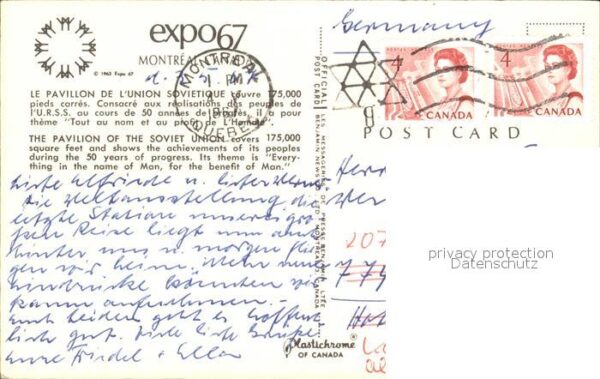 expo67
MONTRÉAL
© 1963 Expo 67
LE PAVILLON DE L'UNION SOVIETIQUE couvre 175,000
pieds carrés. Consacré aux réalisations des peuples de
l'U.R.S.S. au cours de 50 années de progrès, il a pour
thème "Tout au nom et au profit de L'Homme".
THE PAVILION OF THE SOVIET UNION covers 175,000
square feet and shows the achievements of its peoples
during the 50 years of progress. Its theme is "Every-
thing in the name of Man, for the benefit of Man."
Liebe Elfriede u. lieber
die Weltausstellung die
letzte Station unserer gro-
ßen Reise liegt nun auch
hinter uns u. morgen flie-
gen wir heim. Mehr
Eindrücke könnten wir
kaum aufnehmen. -
Euch beiden geht es hoffent-
lich gut. Viele liebe Grüße
eure Friedel + Ella
MONTREAL
QUEBEC
Germany
4
CANADA
4
CANADA
POST CARD
Herrn
207
privacy protection
Datenschutz
Plastichrome
OF CANADA